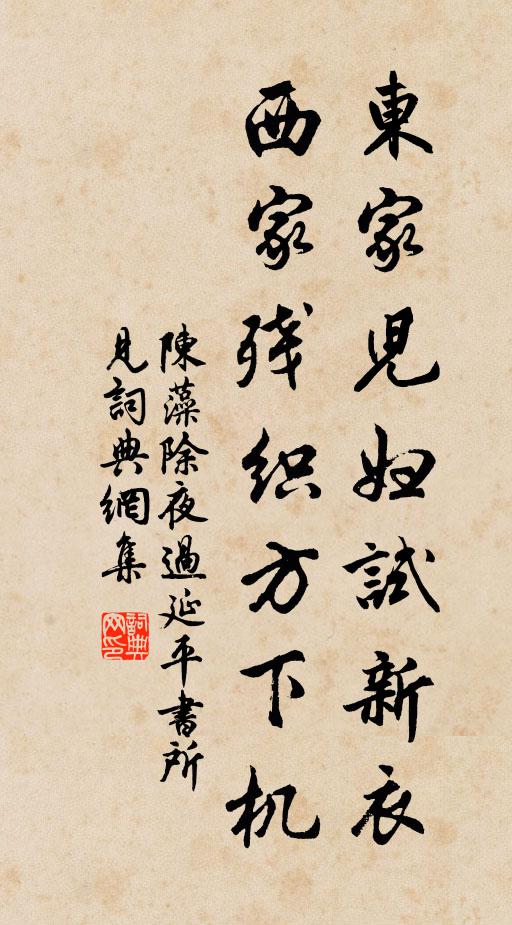 東家児妇試新衣
西家残织方下机
陳藻除夜過延平書所
見詞典網集
詞典网印